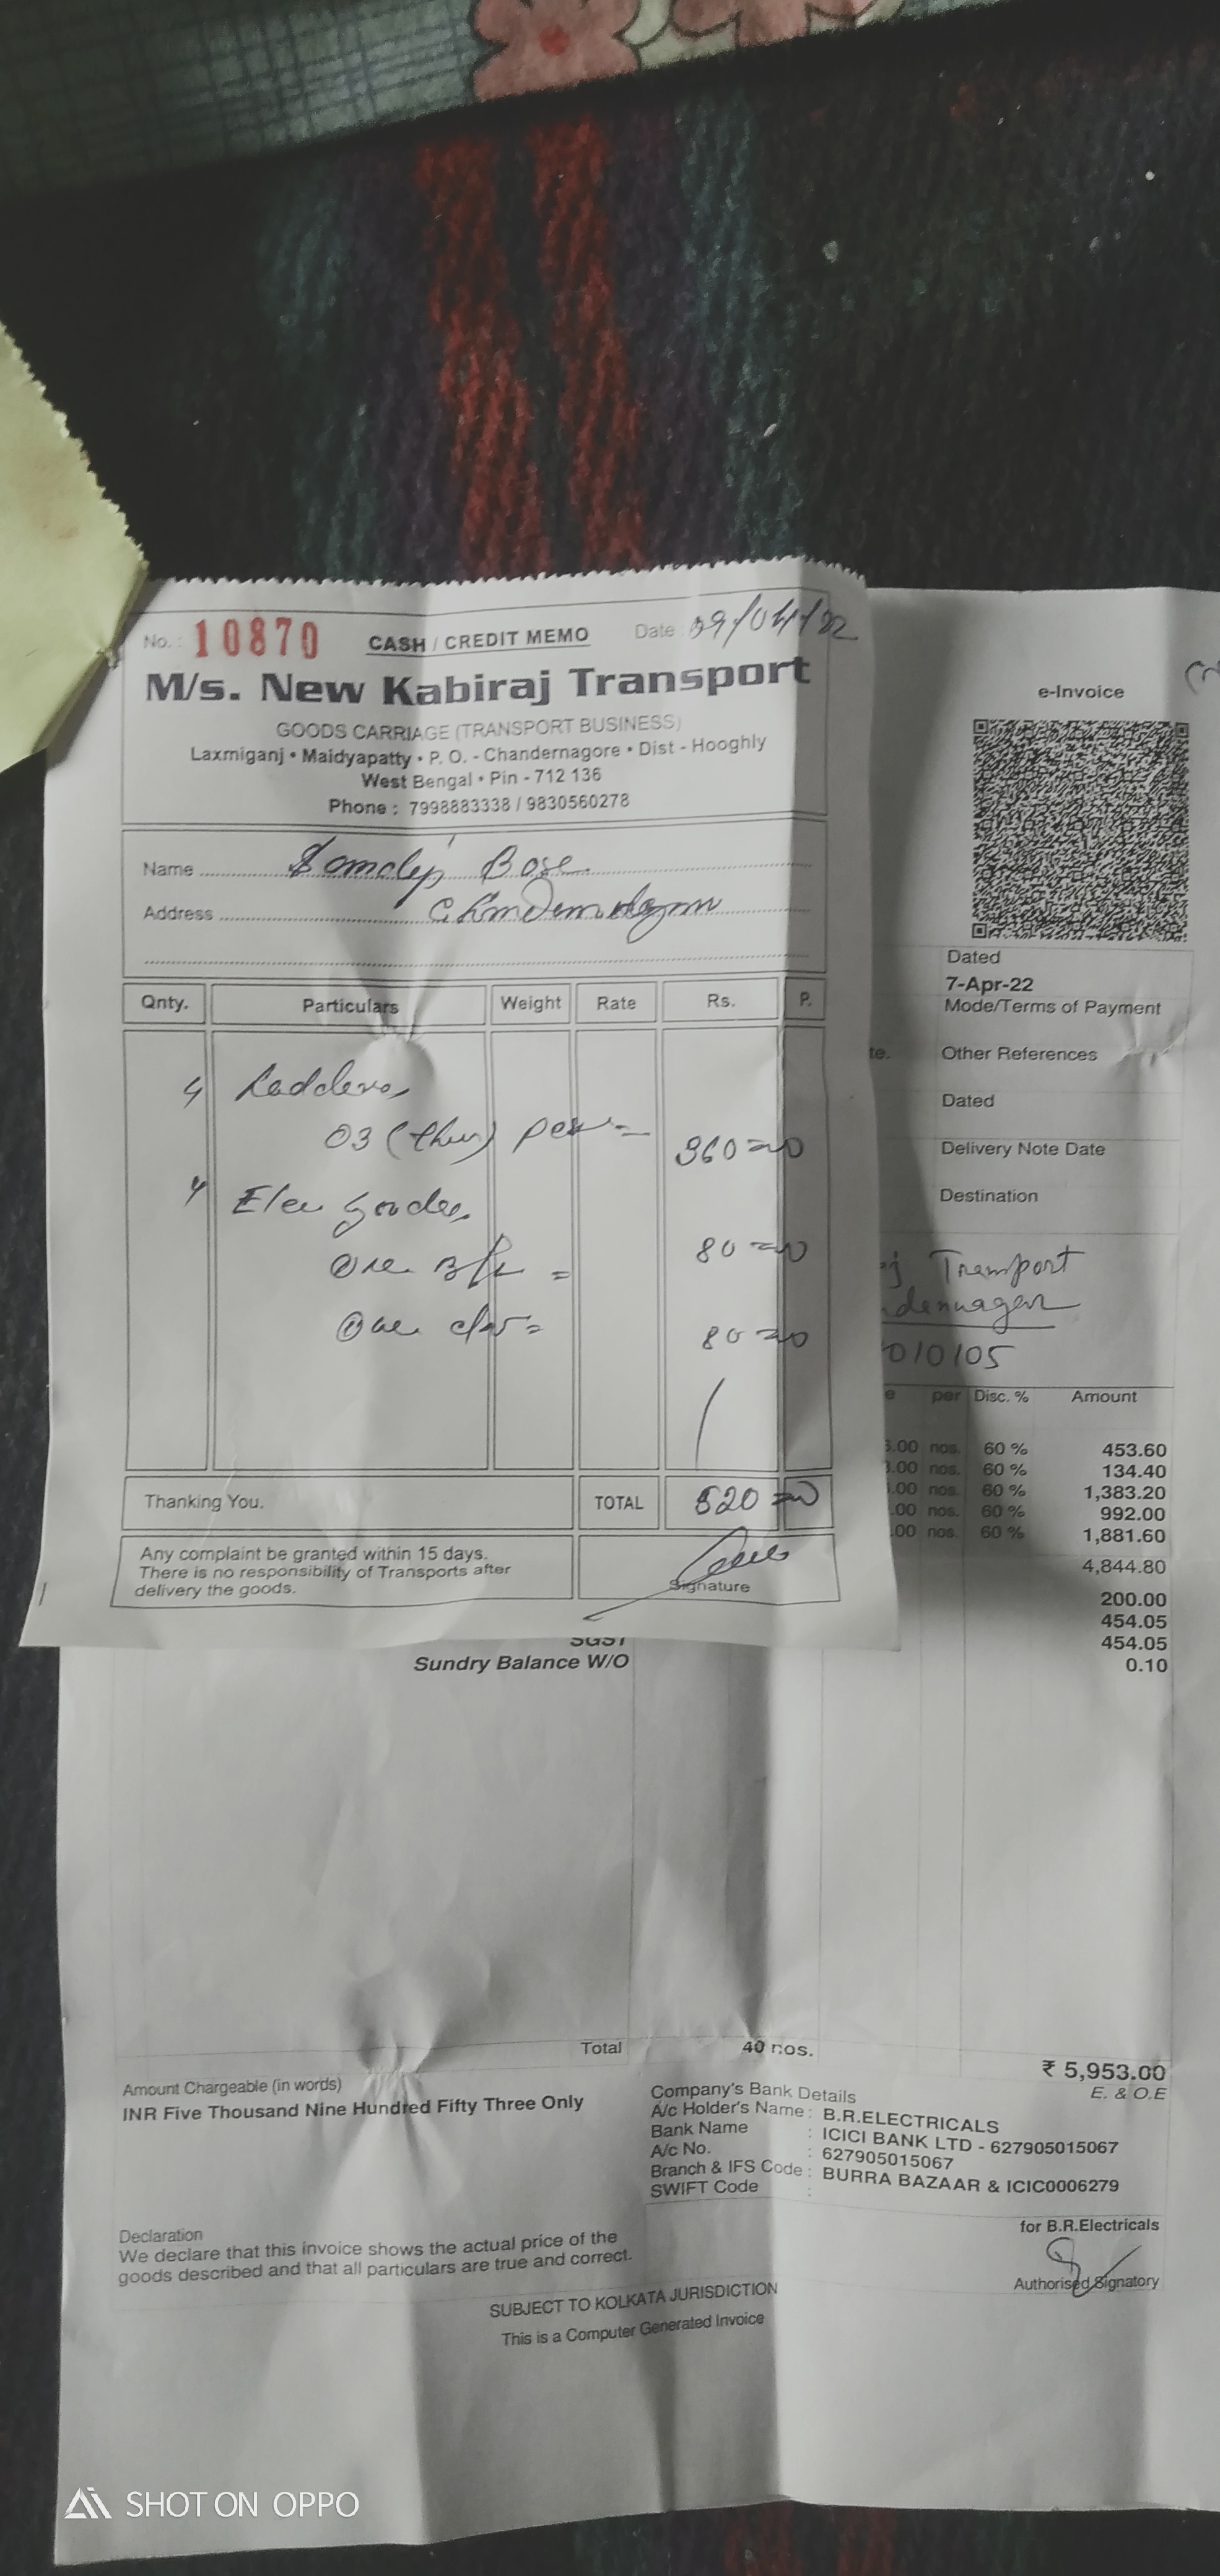 No. : 10870 CASH / CREDIT MEMO Date 09/04/22
M/s. New Kabiraj Transport
GOODS CARRIAGE (TRANSPORT BUSINESS)
Laxmiganj • Maidyapatty • P. O. - Chandernagore • Dist - Hooghly
West Bengal • Pin - 712 136
Phone : 7998883338 / 9830560278
Name Bose
Address
Qnty. Particulars Weight Rate Rs. P.
Ladders
03 ( ) 360=00
Elec goods
One = 80=00
One = 80=00
Thanking You. TOTAL 520=00
Any complaint be granted within 15 days.
There is no responsibility of Transports after
delivery the goods.
Signature
e-Invoice
Dated
7-Apr-22
Mode/Terms of Payment
te. Other References
Dated
Delivery Note Date
Destination
j Transport
dennagar
010105
e per Disc. % Amount
.00 nos. 60 % 453.60
.00 nos. 60 % 134.40
.00 nos. 60 % 1,383.20
.00 nos. 60 % 992.00
.00 nos. 60 % 1,881.60
4,844.80
200.00
454.05
SGST 454.05
Sundry Balance W/O 0.10
Total 40 nos. ₹ 5,953.00
Amount Chargeable (in words) E. & O.E
INR Five Thousand Nine Hundred Fifty Three Only
Company's Bank Details
A/c Holder's Name : B.R.ELECTRICALS
Bank Name : ICICI BANK LTD - 627905015067
A/c No. : 627905015067
Branch & IFS Code : BURRA BAZAAR & ICIC0006279
SWIFT Code :
for B.R.Electricals
Declaration
We declare that this invoice shows the actual price of the
goods described and that all particulars are true and correct.
Authorised Signatory
SUBJECT TO KOLKATA JURISDICTION
This is a Computer Generated Invoice
SHOT ON OPPO